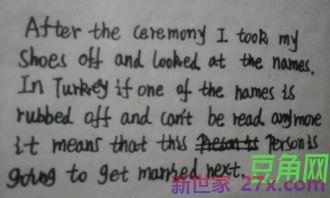 After the ceremony I took my
shoes off and looked at the names.
In Turkey if one of the names is
rubbed off and can't be read anymore
it means that this person is
going to get married next.
豆角网
新世家 27x.com